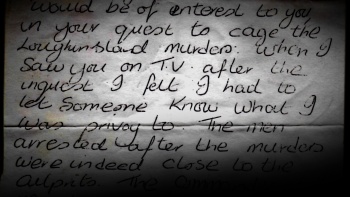 would be of enterest to you
in your quest to cage the
Loughinisland murders. When I
saw you on T.V. after the
inquest I felt I had to
let someone know what I
was privoy to. The men
arrested after the murders
were indeed close to the
culprits. The